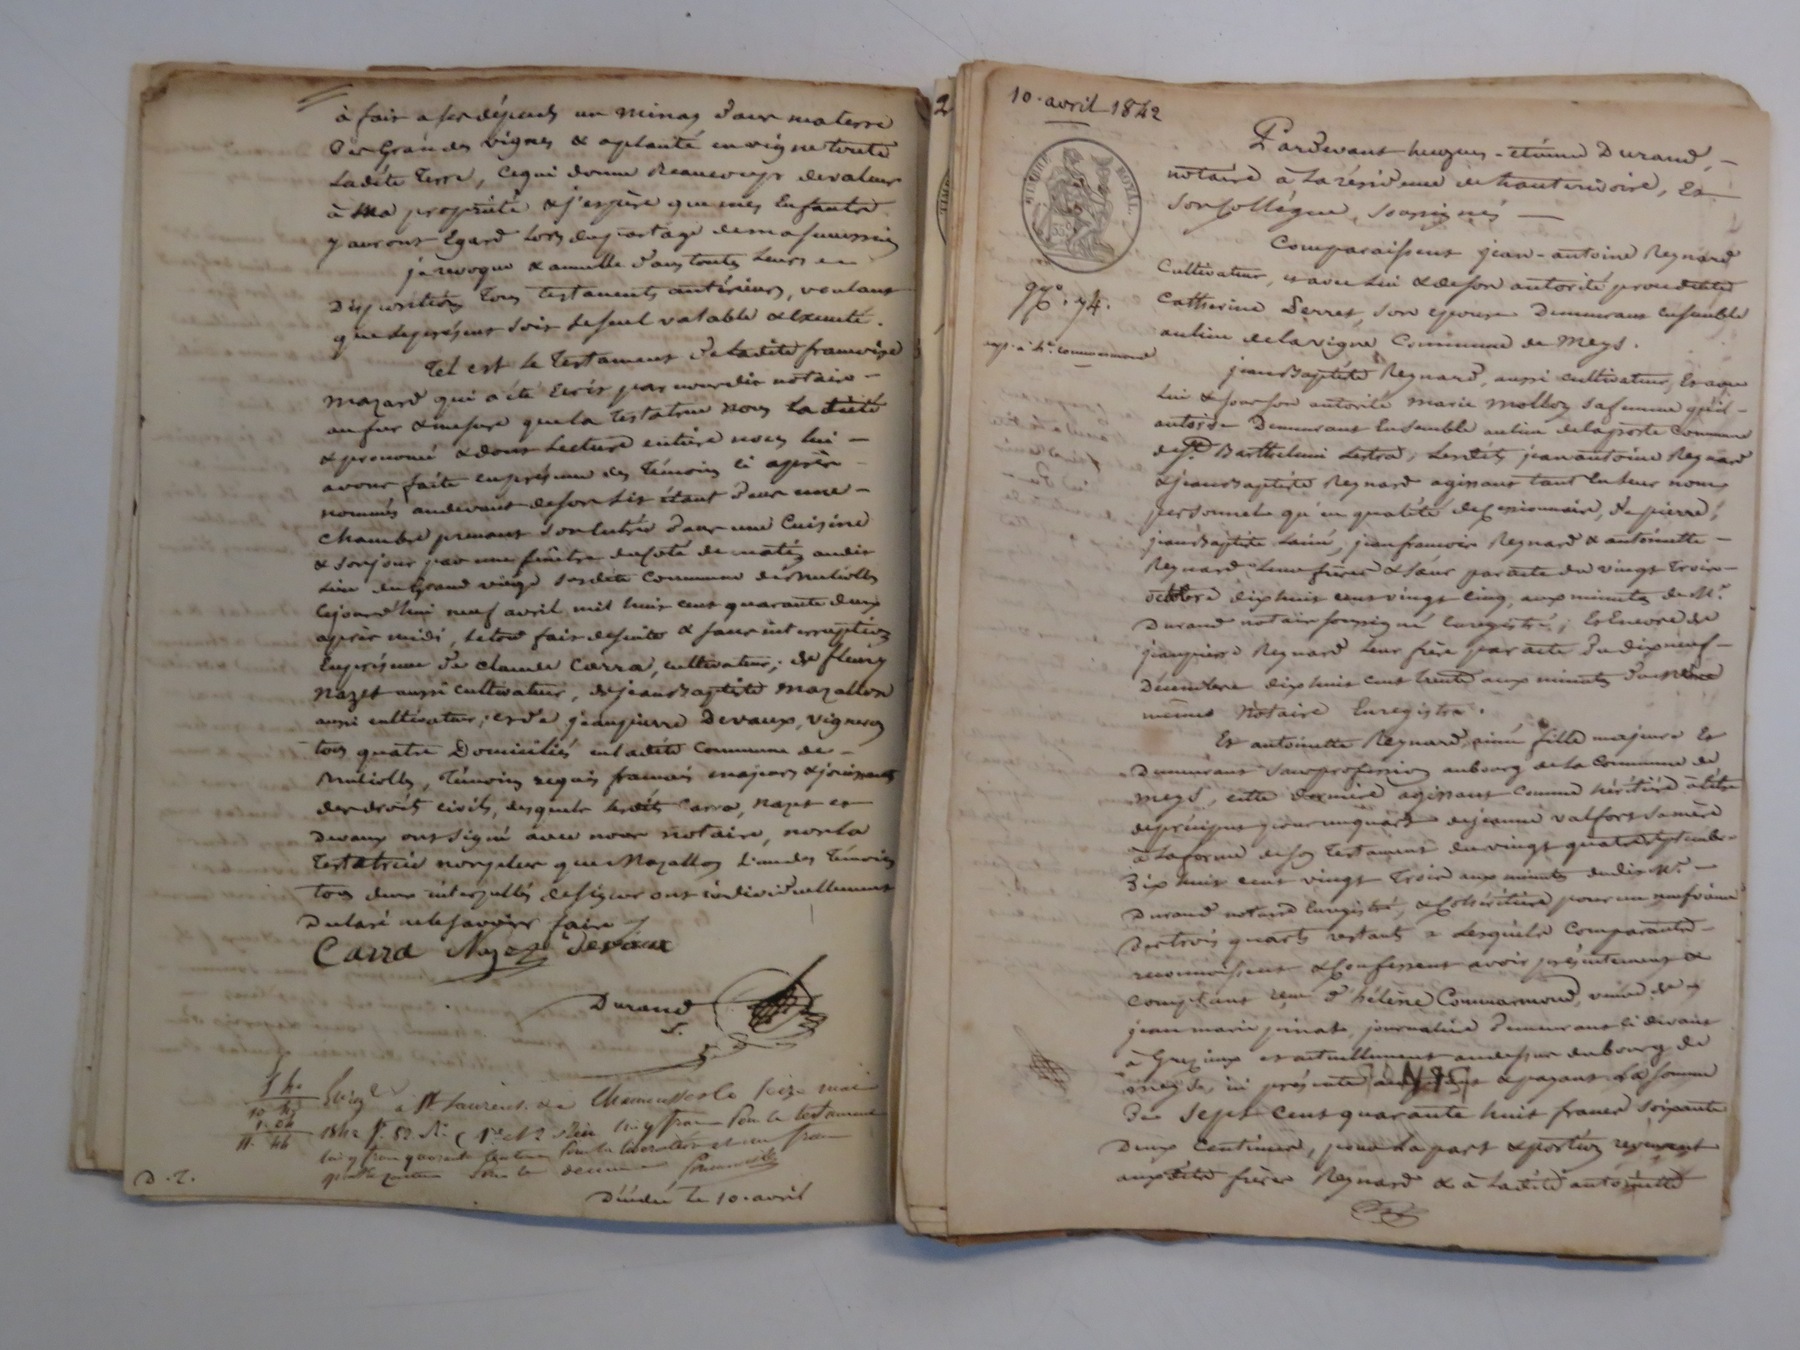 à fair a ses dépends un minag dans ma terre
Des Grandes vignes & a planté en vigne toute
Ladite terre, Cequi donne Beaucoup de valeur
à ma propriété & j'espère que mes Enfants
y auront Egard Lors du partage de ma succession
je revoque & annulle dans toutes Leurs
Dispositions tous testaments antérieurs, voulant
que le présent soit le seul valable & Exécuté.
Tel est le Testament de Ladite françoise
Mazard qui a été Ecrit par nous dit notaire
au fur & mesure que la testatrice nous La dicté
& prononcé & dont Lecture entière nous lui
avons faite en présence des témoins ci après
nommés au devant de son Lit étant dans une
chambre prenant son Entrée dans une Cuisine
& son jour par une fenêtre du coté de matin au dit
Lieu du Grand susdite Commune de Brulioles
Cejourd'hui neuf avril mil huit cent quarante deux
après midi, Le tout fait de suite & sans interruption
En présence de Claude Carra, cultivateur; de fleury
Nazet aussi cultivateur, de jean Baptiste Mazallon
aussi cultivateur; et de jean pierre Devaux, vigneron
tous quatre Domiciliés en ladite Commune de
Brulioles, Témoins requis francais majeurs & jouissants
des droits civils, desquels lesdits Carra, Nazet et
Devaux ont signé avec nous notaire, non la
Testatrice non plus que Mazallon L'un des Témoins
tous deux interpellés de signer ont individuellement
Declaré ne le savoir faire
Carra Nazet Devaux
Durand
5 ho
10 h3
1. 04
11. 46
Enregé à St Laurent de Chamousset le seize mai
1842 fo 82 Ro C 1re et 2 Reçu cinq francs Pour le testament
cinq francs quarante centimes Pour la et un franc
quatre centimes Pour le decime
D. 2.
Duedu le 10 avril
2
10. avril 1842
TIMBRE ROYAL.
35
No. 74.
exp. à He. Commarmond
Pardevant hugues-etiénne Durand,
notaire à La résidence de hauterivoire, Et
Son Collégue, soussignés
Comparaissent jean-antoine Reynard
Cultivateur, et avec Lui & de son autorité procedante
Catherine Perret, son epouse Demeurant ensemble
au lieu de la vigne Commune de Meys.
jean Baptiste Reynard, aussi cultivateur, Et avec
Lui & sous son autorité Marie Mollon sa femme qu'il
autorise Demeurant Ensemble au lieu de la poste Commune
de St Barthelemi Lestra, Lesdits jean antoine Reynard
& jean Baptiste Reynard agissant tant En leur noms
personnels qu'en qualité de Cessionnaire, de pierre,
jean Baptiste L'ainé, jean francois Reynard & antoinette
Reynard Leurs frères & sœur par acte du vingt trois
octobre dix huit cent vingt cinq, aux minutes de Mr.
Durand notaire soussigné Enregistré; Et Encore de
jean pierre Reynard Leur frère par acte du dix neuf
Décembre dix huit cent trente aux minutes
même Notaire Enregistré.
Et antoinette Reynard, ainée fille majeure Et
Demeurant sans profession au bourg de La Commune de
Meys, cette dernière agissant Comme héritière à titre
de préciput pour un quart de jeanne valfort sa mère
à La forme de son Testament du vingt quatre septembre
Dix huit cent vingt Trois aux minutes du dit Mr.
Durand notaire Enregistré, & Cohéritière pour un neuvième
Des trois quarts restants. Lesquels Comparants
reconnoissent & Confessent avoir présentement &
Comptant reçu d'hélène Commarmond, veuve de
jean marie pinat, journalière Demeurant ci devant
à Grezieux et actuellement au dessus du bourg de
Meys, ici présente & payant La somme
De Sept cent quarante huit francs soixante
Deux Centimes, pour La part & portion revenant
auxdits frères Reynard & à Ladite antoinette